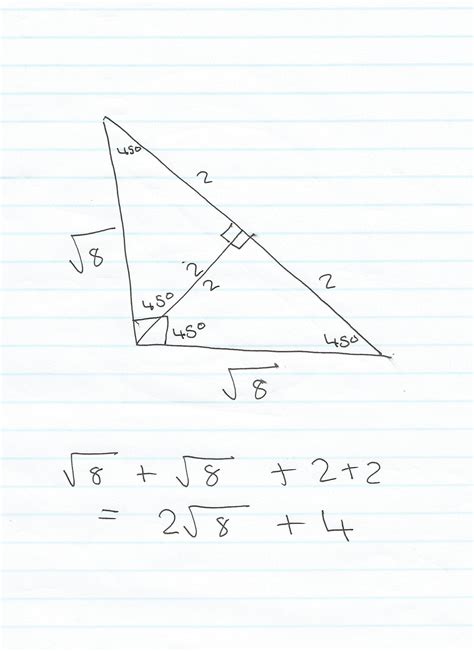 45°
2
√8
2
2
2
45°
45°
45°
√8
√8 + √8 + 2+2
= 2√8 + 4